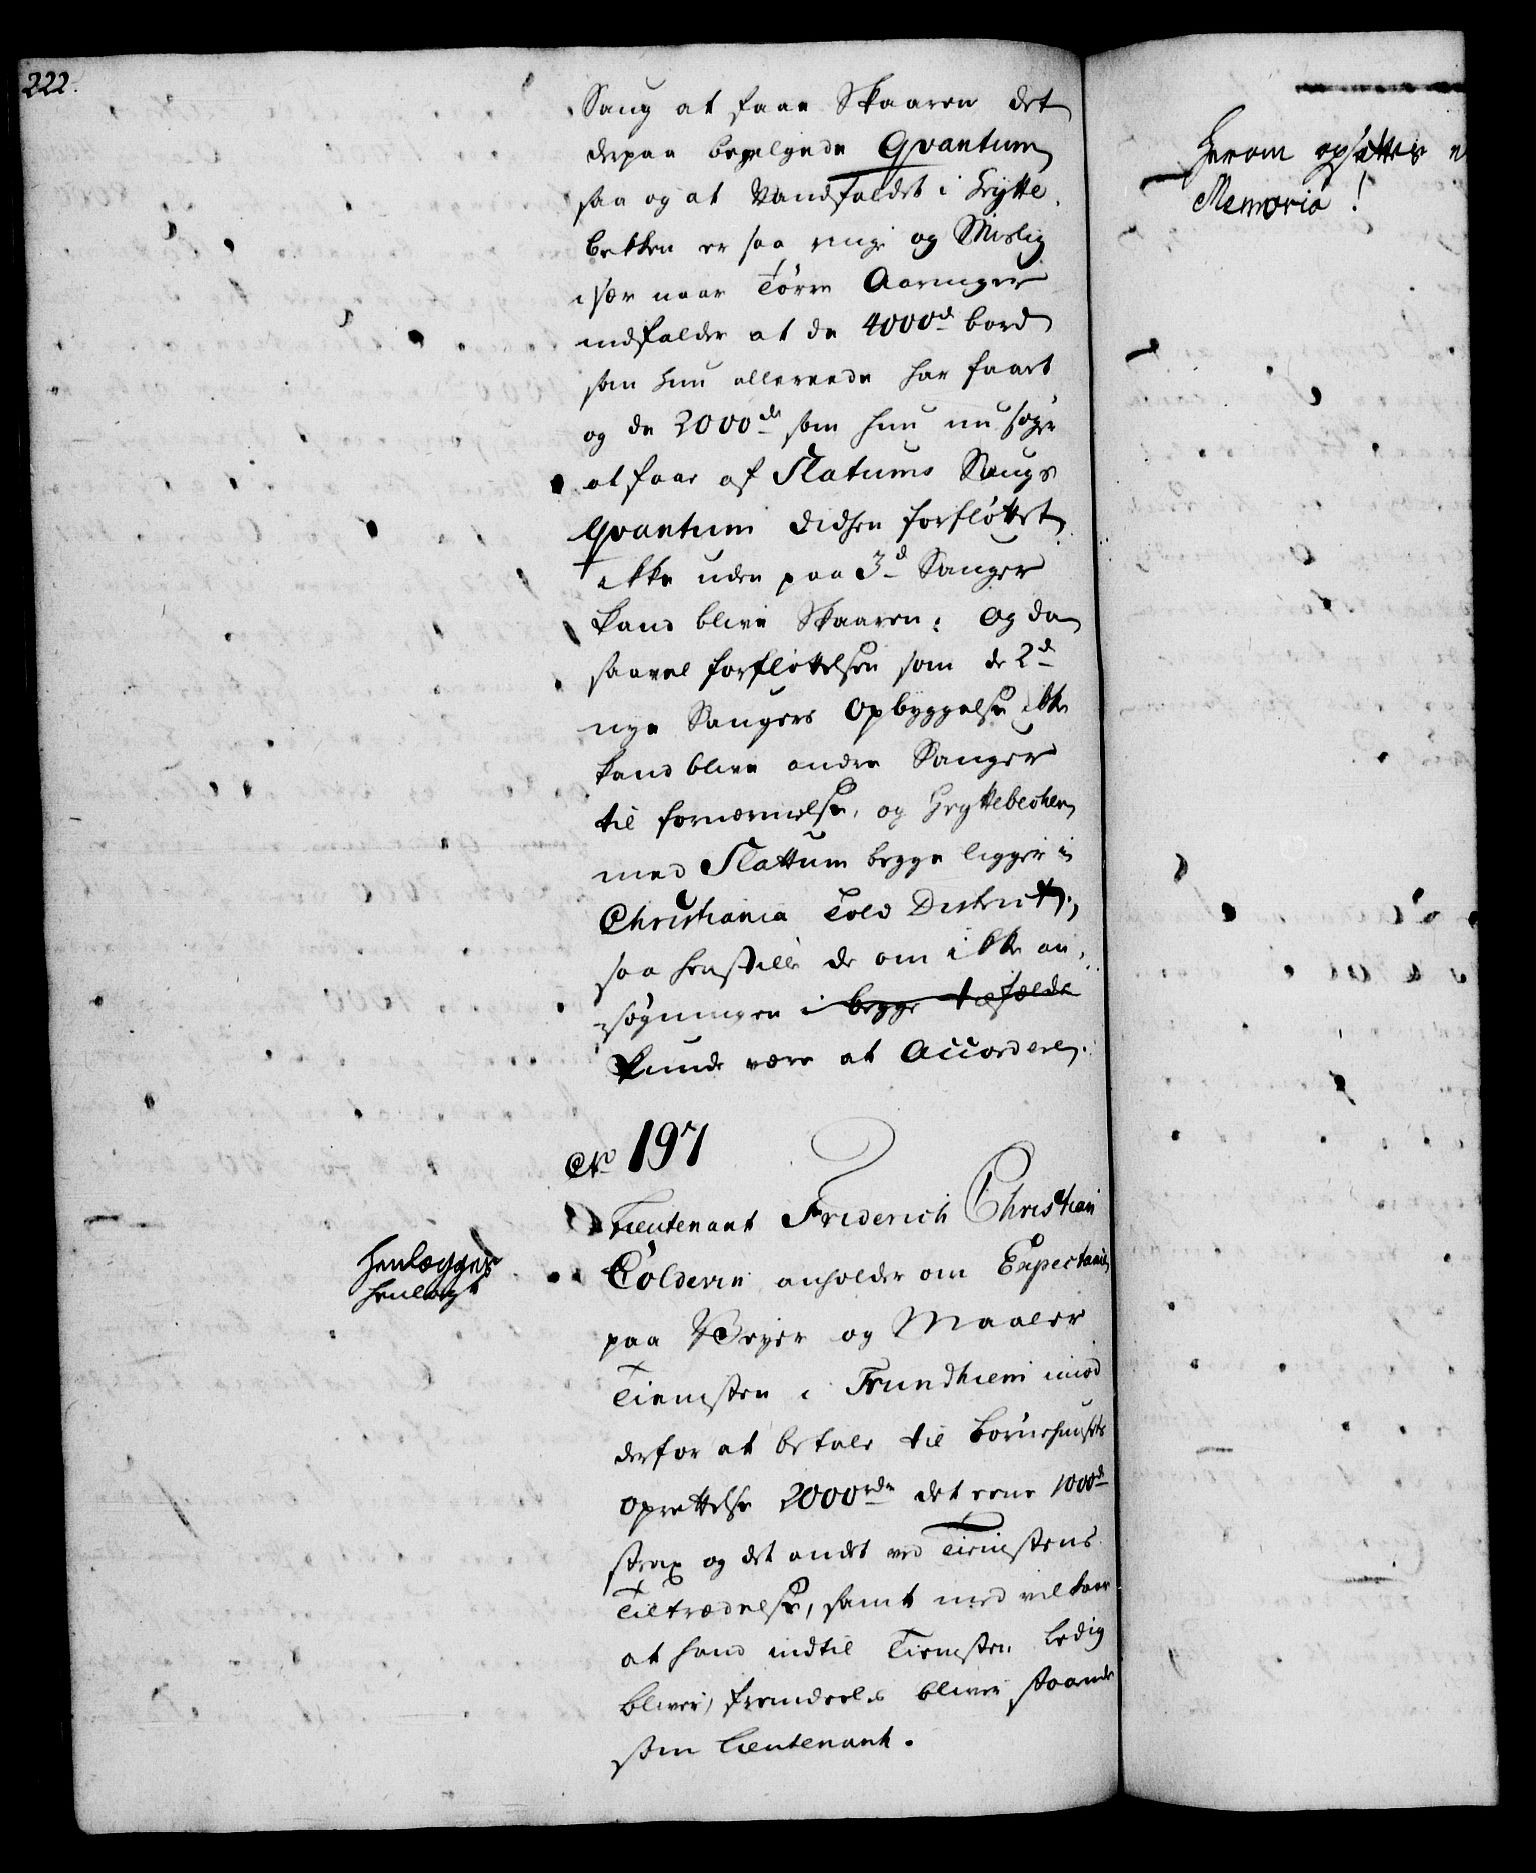 222.
Saug at faae Skaaren det
derpaa bevilgede Qvantum
saa og at Vandfaldet i Grytte
bekken er saa ringe og Mislig
især naar Tørre Aaringer
indfalder at de 4000d bord
som hun allereede har faaet
og de 2000de som hun nu søger
at faae af Slatums Saugs
Qvantum didhen forfløttet
ikke uden paa 3d Sauger
kand blive Skaaren; Og da
saavel forfløttelsen som de 2d
nye Saugers Opbyggelse ikke
kand blive andre Sauger
til fornærmelse, og Gryttebechen
med Slattum begge ligger i
Christiania Told District,
saa henstilles de om ikke an-
søgningen i begge tilfælde
kunde være at Accordere.
No 197
Lieutenant Friderich Christian
Colderin anholder om Expectance
paa Veyer og Maaler
Tienesten i Trundhiem imod
derfor at betale til Børnehusets
Oprettelse 2000rdr det eene 1000d
strax og det andet ved Tienestens
Tiltrædelse, samt med vilkaar
at hand indtil Tienesten ledig
bliver, fremdeeles bliver staaende
som Lieutenant.
Henlægges
henlagt
Herom opsættes
Memoria!